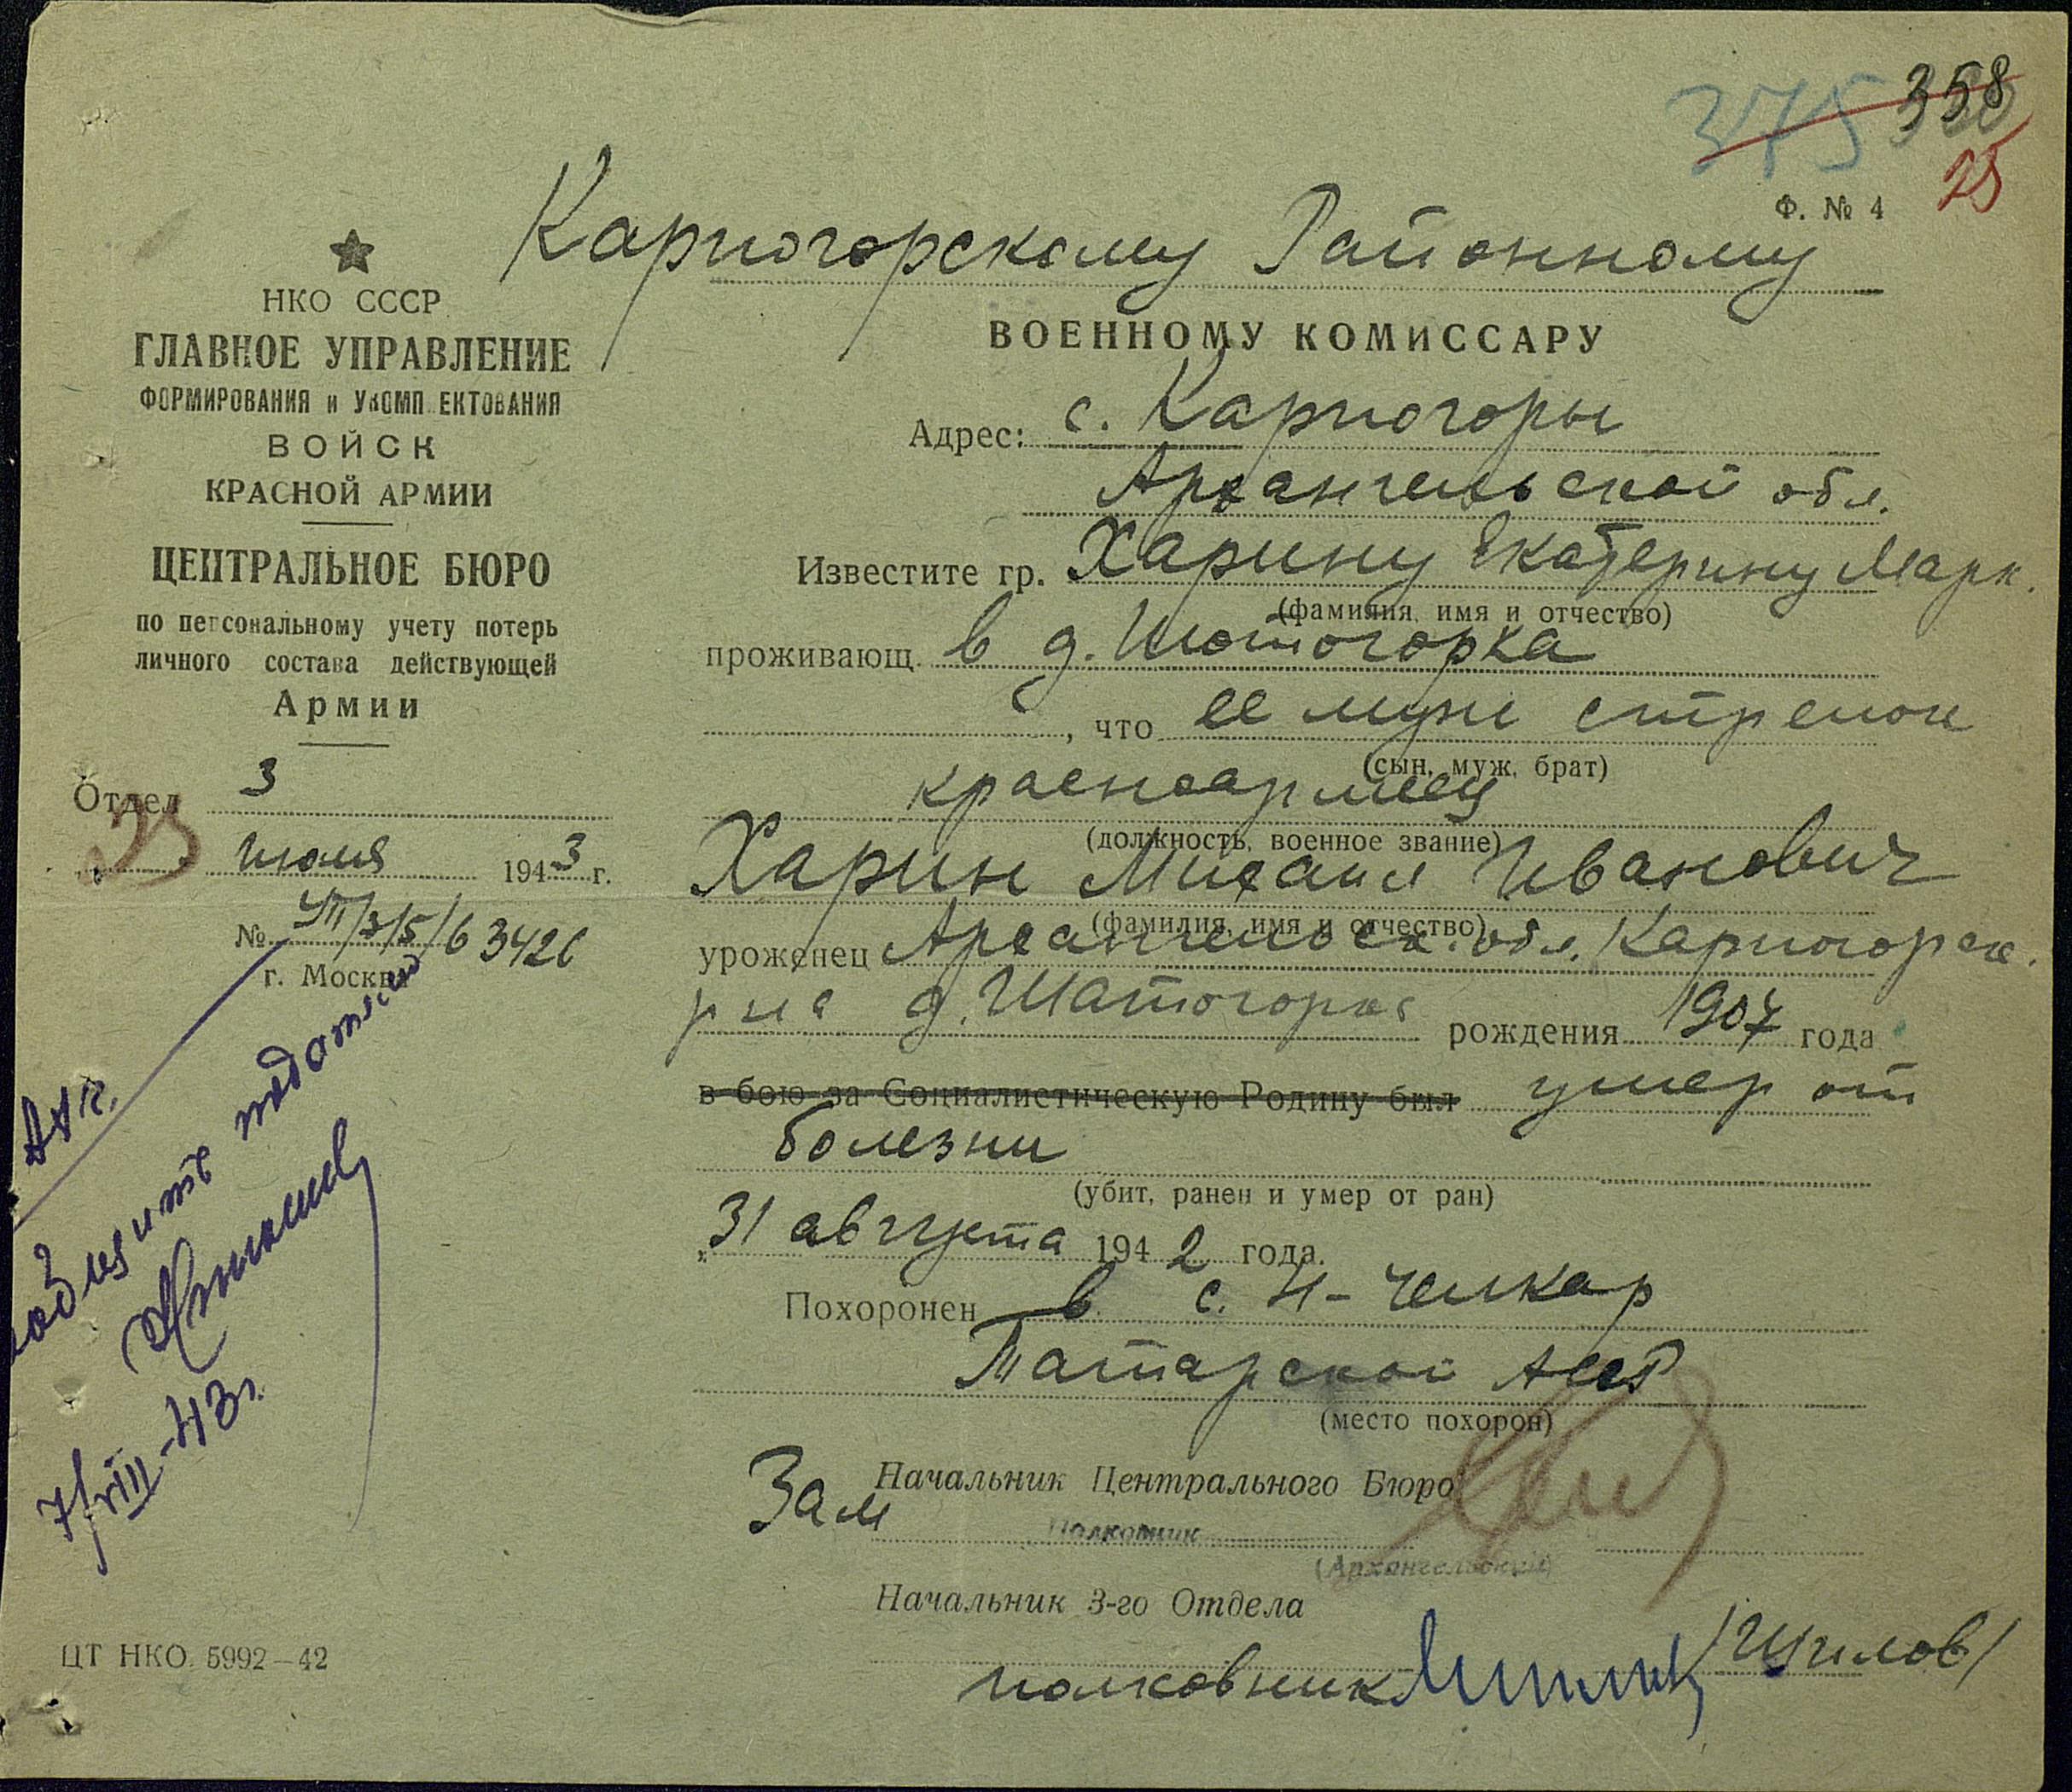 375 358
25
Ф. № 4
НКО СССР
ГЛАВНОЕ УПРАВЛЕНИЕ
ФОРМИРОВАНИЯ и УКОМП ЕКТОВАНИЯ
ВОЙСК
КРАСНОЙ АРМИИ
ЦЕНТРАЛЬНОЕ БЮРО
по персональному учету потерь
личного состава действующей
Армии
Отдел 3
23 июля 1943 г.
№ УП/3/5/63426
г. Москва
7/VIII-43г.
ЦТ НКО. 5992—42
Карпогорскому Районному
ВОЕННОМУ КОМИССАРУ
Адрес: с. Карпогоры
Архангельской обл.
Известите гр. Харину Екатерину Марк.
(фамилия, имя и отчество)
проживающ. в д. Шотогорка
, что ее муж стрелок
(сын, муж, брат)
красноармеец
(должность, военное звание)
Харин Михаил Иванович
(фамилия, имя и отчество)
уроженец Архангельск. обл. Карпогорск.
р-на д. Шатогорка рождения 1907 года
в бою за Социалистическую Родину был умер от
болезни
(убит, ранен и умер от ран)
„31 августа 1942 года.
Похоронен в с. Н-Челкар
Татарской АССР
(место похорон)
Зам Начальник Центрального Бюро
Полковник
(Архангельский)
Начальник 3-го Отдела
полковник /Шилов/